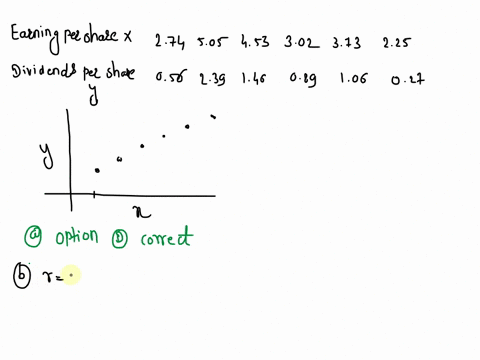 Earning per share x 2.74 5.05 4.53 3.02 3.73 2.25
Dividends per share y 0.56 2.39 1.46 0.89 1.06 0.27
y
x
ⓐ option Ⓓ correct
ⓑ r=